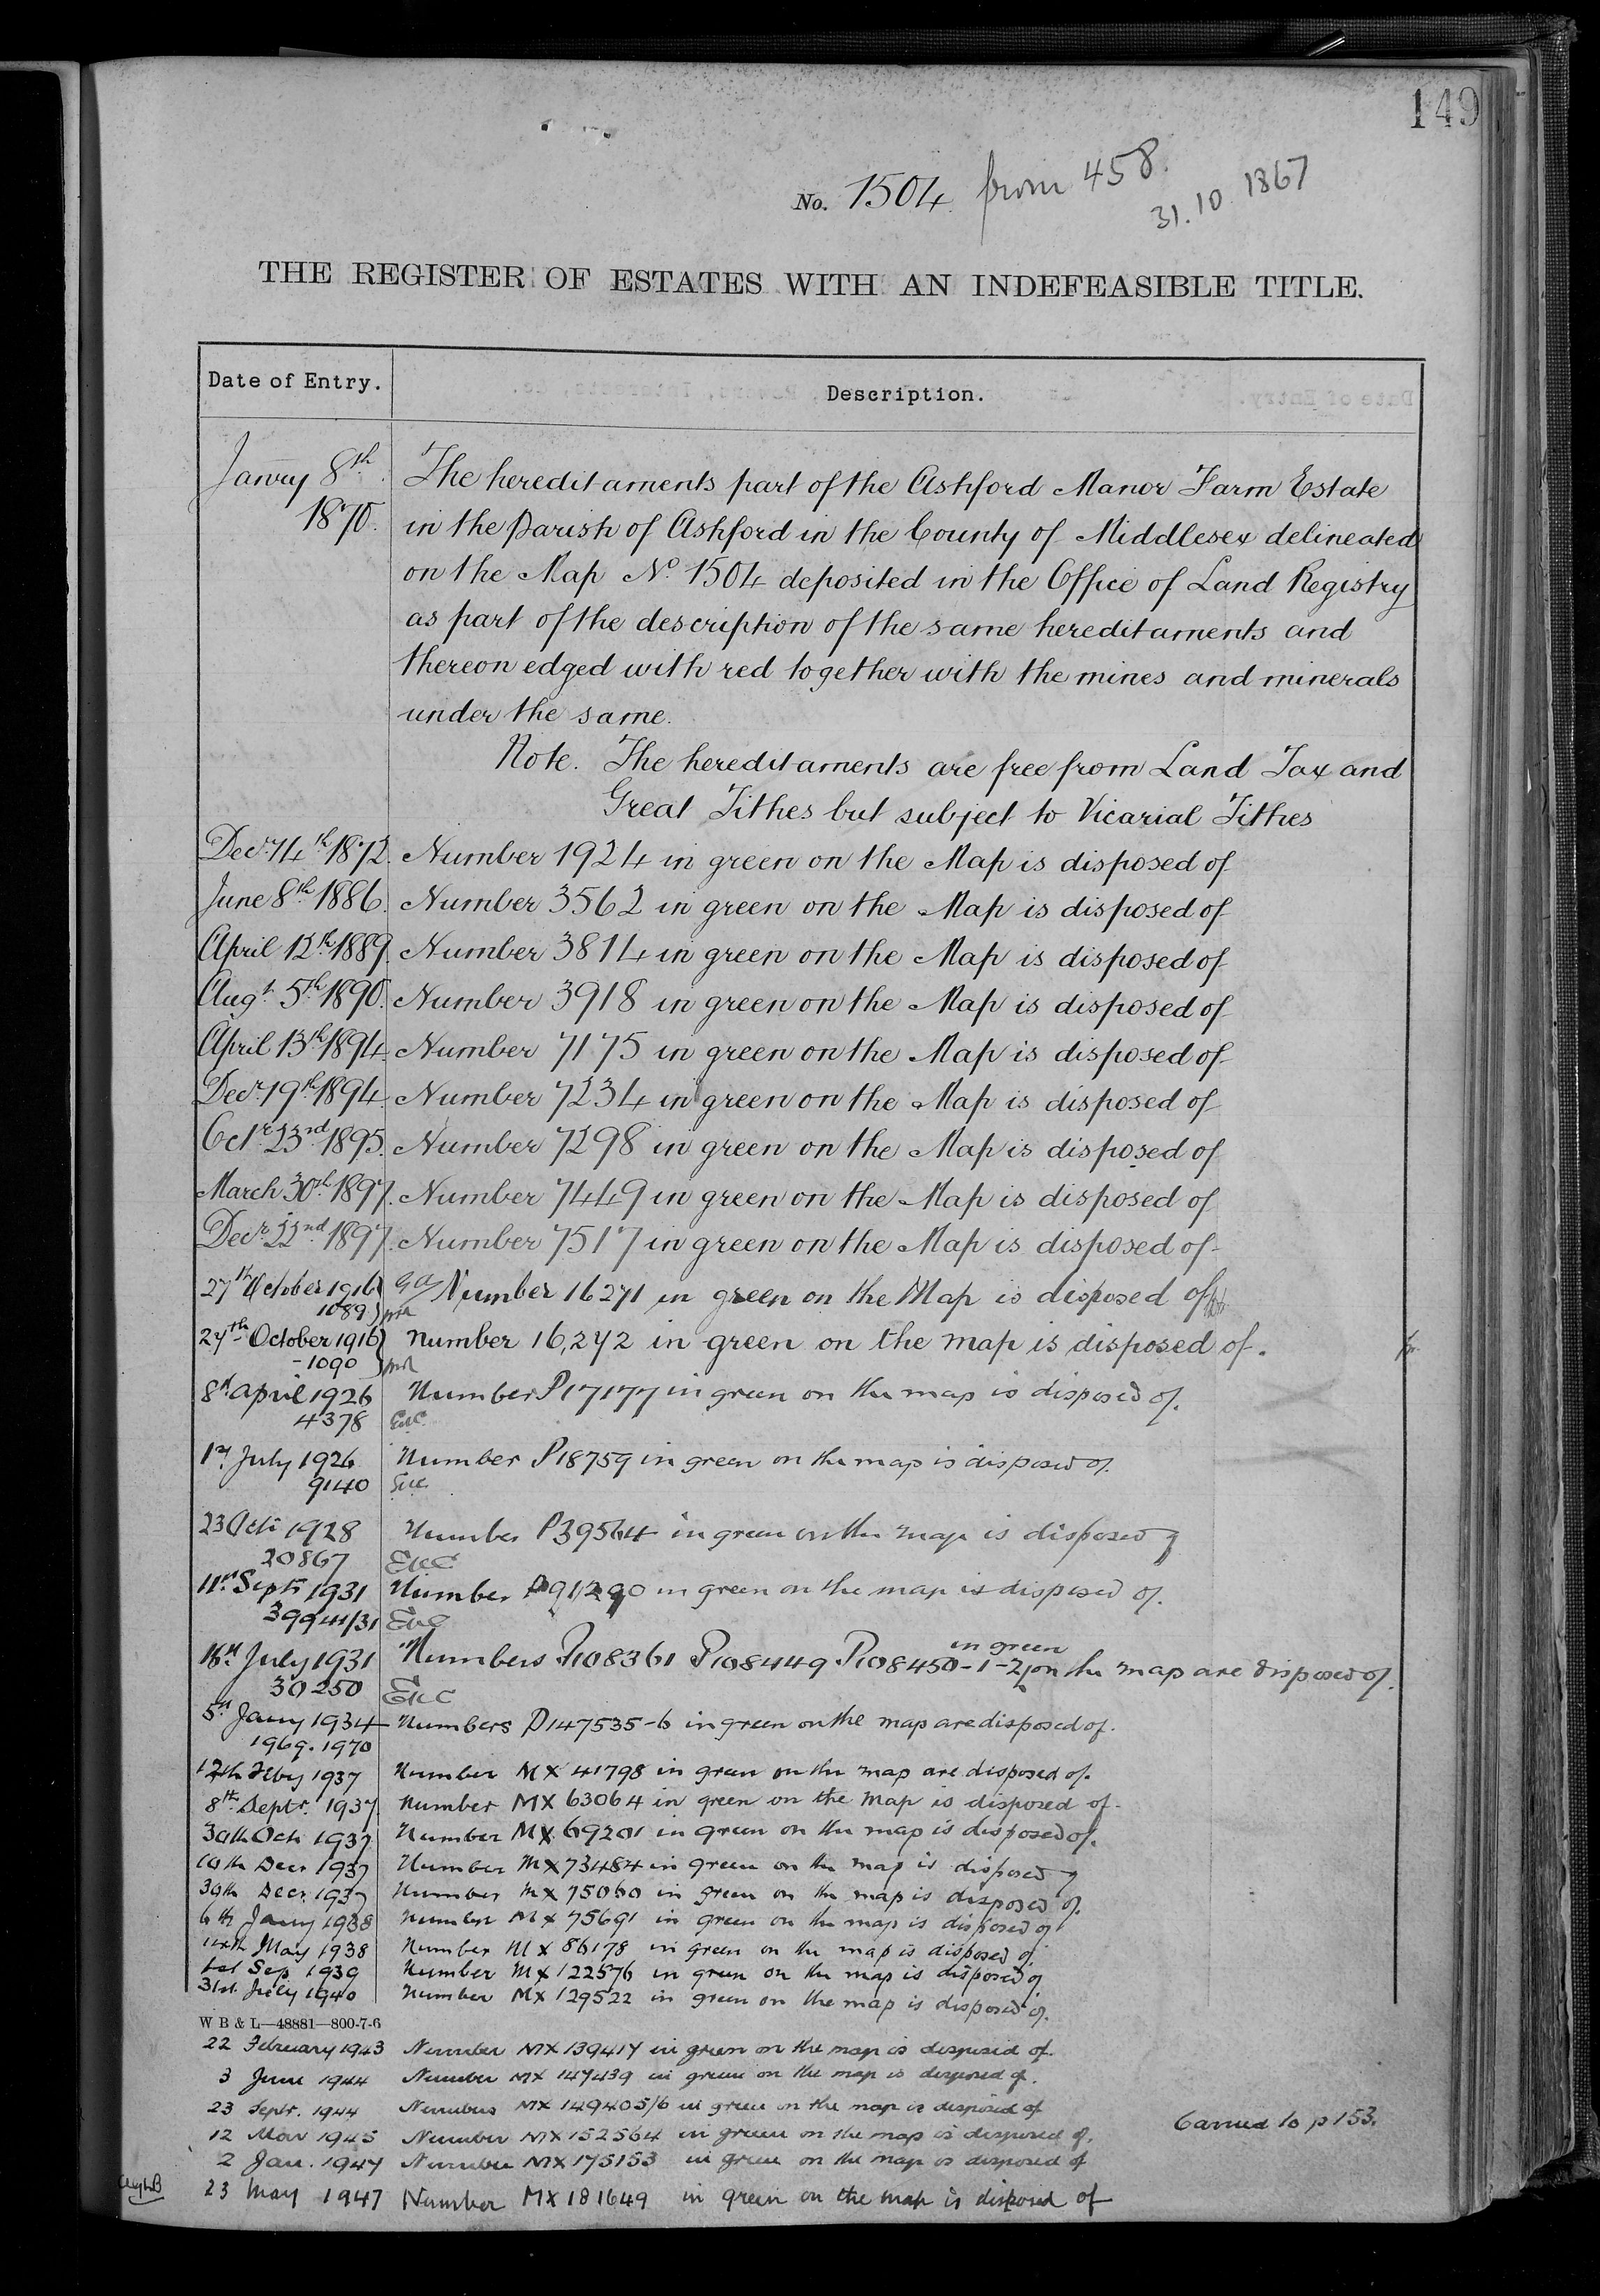 149
No. 1504 from 458.
31.10 1867
THE REGISTER OF ESTATES WITH AN INDEFEASIBLE TITLE.
Date of Entry. Description.
Janry 8th The hereditaments part of the Ashford Manor Farm Estate
1870. in the Parish of Ashford in the County of Middlesex delineated
on the Map No. 1504 deposited in the Office of Land Registry
as part of the description of the same hereditaments and
thereon edged with red together with the mines and minerals
under the same.
Note. The hereditaments are free from Land Tax and
Great Tithes but subject to Vicarial Tithes
Decr. 14th 1872. Number 1924 in green on the Map is disposed of
June 8th 1886. Number 3562 in green on the Map is disposed of
April 12th 1889. Number 3814 in green on the Map is disposed of
Augt. 5th 1890. Number 3918 in green on the Map is disposed of
April 13th 1894. Number 7175 in green on the Map is disposed of
Decr. 19th 1894. Number 7234 in green on the Map is disposed of
Octr. 23rd 1895. Number 7298 in green on the Map is disposed of
March 30th 1897. Number 7449 in green on the Map is disposed of
Decr. 22nd 1897. Number 7517 in green on the Map is disposed of
27th October 1916 Number 16271 in green on the Map is disposed of
1089
27th October 1916 Number 16,272 in green on the map is disposed of.
-1090
8th April 1926 Number P17177 in green on the map is disposed of.
4378
1st July 1926 Number P18759 in green on the map is disposed of.
9140
23 Oct 1928 Number P39564 in green on the map is disposed of
20867
11th Sept 1931 Number P91290 in green on the map is disposed of.
39941/31
in green
16th July 1931 Numbers P108361 P108449 P108450-1-2 on the map are disposed of.
30250
5th Jany 1934 Numbers P147535-6 in green on the map are disposed of.
1969.1970
12th Feby 1937 Number MX 41798 in green on the map are disposed of.
8th Septr. 1937. Number MX 63064 in green on the map is disposed of.
30th Oct 1937 Number MX 69201 in green on the map is disposed of.
10th Decr 1937 Number MX 73484 in green on the map is disposed of
30th Decr 1937 Number MX 75060 in green on the map is disposed of.
6th Jany 1938 Number MX 75691 in green on the map is disposed of
14th May 1938 Number MX 86178 in green on the map is disposed of.
1st Sep. 1939 Number MX 122576 in green on the map is disposed of
31st July 1940 Number MX 129522 in green on the map is disposed of.
W B & L—48881—800-7-6
22 February 1943 Number MX 139417 in green on the map is disposed of.
3 June 1944 Number MX 147439 in green on the map is disposed of.
23 Septr. 1944 Numbers MX 149405/6 in green on the map is disposed of
12 Mar 1945 Number MX 152564 in green on the map is disposed of.
Carried to p 153.
2 Jan. 1947 Number MX 175153 in green on the map is disposed of
23 May 1947 Number MX 181649 in green on the map is disposed of